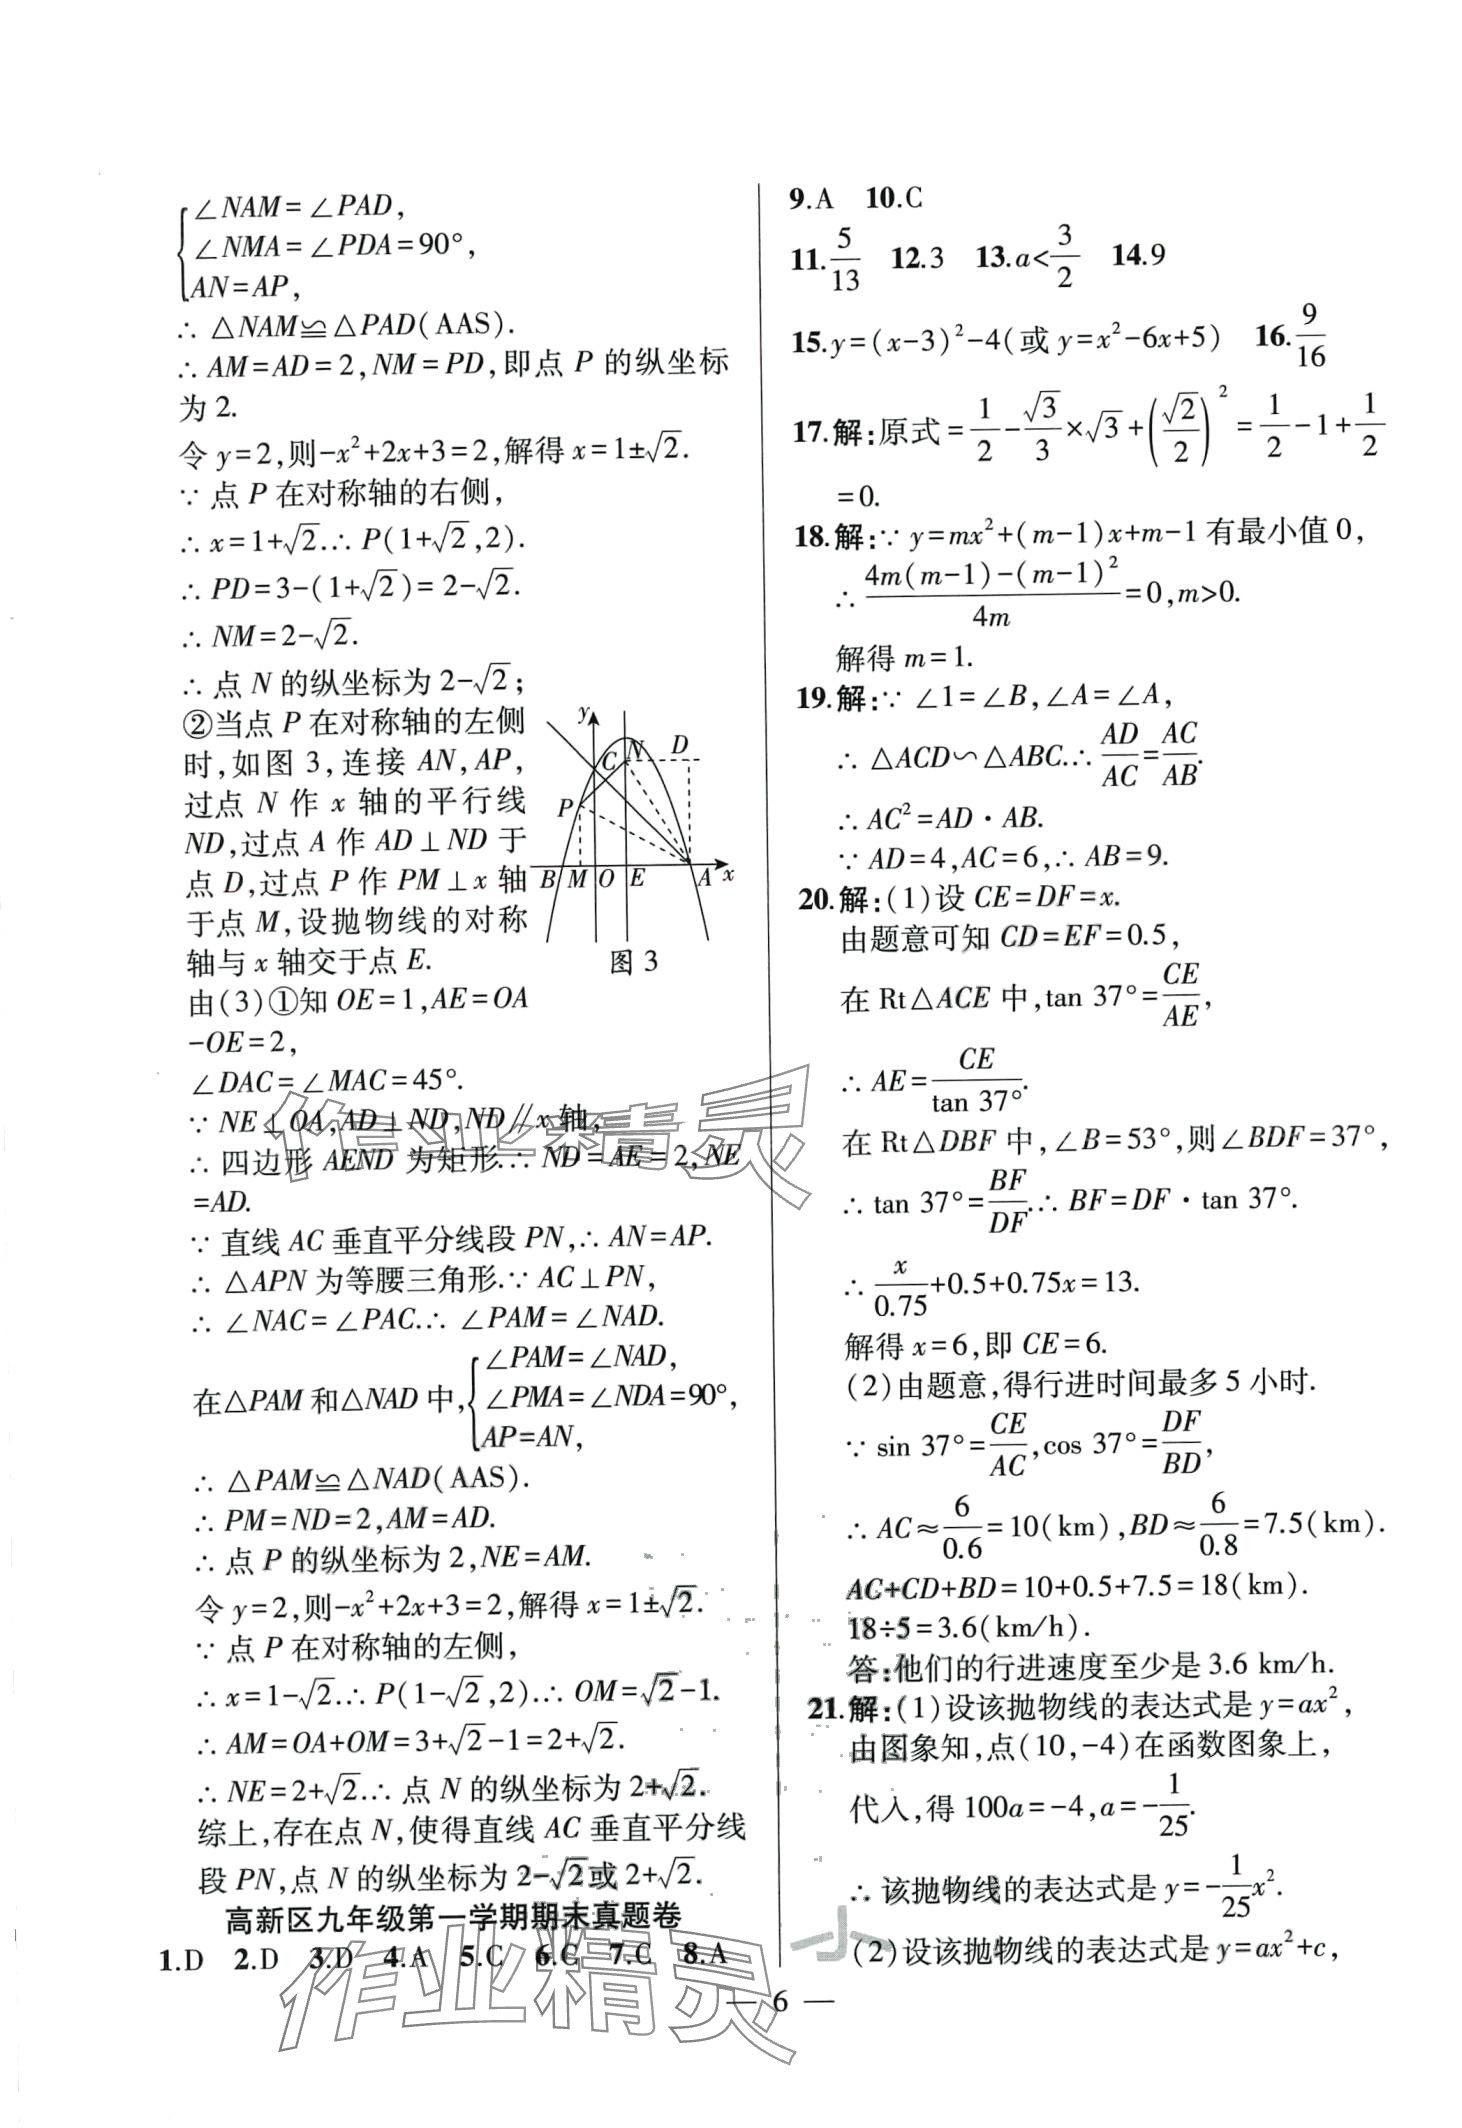 ∠NAM=∠PAD,
∠NMA=∠PDA=90°,
AN=AP,
∴ △NAM≌△PAD(AAS).
∴ AM=AD=2,NM=PD,即点 P 的纵坐标
为2.
令 y=2,则-x²+2x+3=2,解得 x=1±√2.
∵ 点 P 在对称轴的右侧,
∴ x=1+√2.∴ P(1+√2,2).
∴ PD=3-(1+√2)=2-√2.
∴ NM=2-√2.
∴ 点 N 的纵坐标为 2-√2;
②当点 P 在对称轴的左侧
时,如图 3,连接 AN,AP,
过点 N 作 x 轴的平行线
ND,过点 A 作 AD⊥ND 于
点 D,过点 P 作 PM⊥x 轴
于点 M,设抛物线的对称
轴与 x 轴交于点 E.
y
C N D
P
B M O E A x
图 3
由(3)①知 OE=1,AE=OA
-OE=2,
∠DAC=∠MAC=45°.
∵ NE⊥OA,AD⊥ND,ND∥x 轴,
∴ 四边形 AEND 为矩形.∴ ND=AE=2,NE
=AD.
∵ 直线 AC 垂直平分线段 PN,∴ AN=AP.
∴ △APN 为等腰三角形.∵ AC⊥PN,
∴ ∠NAC=∠PAC.∴ ∠PAM=∠NAD.
在△PAM 和△NAD 中,{∠PAM=∠NAD,
∠PMA=∠NDA=90°,
AP=AN,
∴ △PAM≌△NAD(AAS).
∴ PM=ND=2,AM=AD.
∴ 点 P 的纵坐标为 2,NE=AM.
令 y=2,则-x²+2x+3=2,解得 x=1±√2.
∵ 点 P 在对称轴的左侧,
∴ x=1-√2.∴ P(1-√2,2).∴ OM=√2-1.
∴ AM=OA+OM=3+√2-1=2+√2.
∴ NE=2+√2.∴ 点 N 的纵坐标为 2+√2.
综上,存在点 N,使得直线 AC 垂直平分线
段 PN,点 N 的纵坐标为 2-√2或 2+√2.
高新区九年级第一学期期末真题卷
1.D 2.D 3.D 4.A 5.C 6.C 7.C 8.A
9.A 10.C
11.5/13 12.3 13.a<3/2 14.9
15.y=(x-3)²-4(或 y=x²-6x+5) 16.9/16
17.解:原式=1/2-√3/3×√3+(√2/2)²=1/2-1+1/2
=0.
18.解:∵ y=mx²+(m-1)x+m-1 有最小值 0,
∴ (4m(m-1)-(m-1)²)/4m=0,m>0.
解得 m=1.
19.解:∵ ∠1=∠B,∠A=∠A,
∴ △ACD∽△ABC.∴ AD/AC=AC/AB.
∴ AC²=AD·AB.
∵ AD=4,AC=6,∴ AB=9.
20.解:(1)设 CE=DF=x.
由题意可知 CD=EF=0.5,
在 Rt△ACE 中,tan 37°=CE/AE,
∴ AE=CE/tan 37°.
在 Rt△DBF 中,∠B=53°,则∠BDF=37°,
∴ tan 37°=BF/DF.∴ BF=DF·tan 37°.
∴ x/0.75+0.5+0.75x=13.
解得 x=6,即 CE=6.
(2)由题意,得行进时间最多 5 小时.
∵ sin 37°=CE/AC,cos 37°=DF/BD,
∴ AC≈6/0.6=10(km),BD≈6/0.8=7.5(km).
AC+CD+BD=10+0.5+7.5=18(km).
18÷5=3.6(km/h).
答:他们的行进速度至少是 3.6 km/h.
21.解:(1)设该抛物线的表达式是 y=ax²,
由图象知,点(10,-4)在函数图象上,
代入,得 100a=-4,a=-1/25.
∴ 该抛物线的表达式是 y=-1/25x².
(2)设该抛物线的表达式是 y=ax²+c,
— 6 —
作业精灵
作业精灵